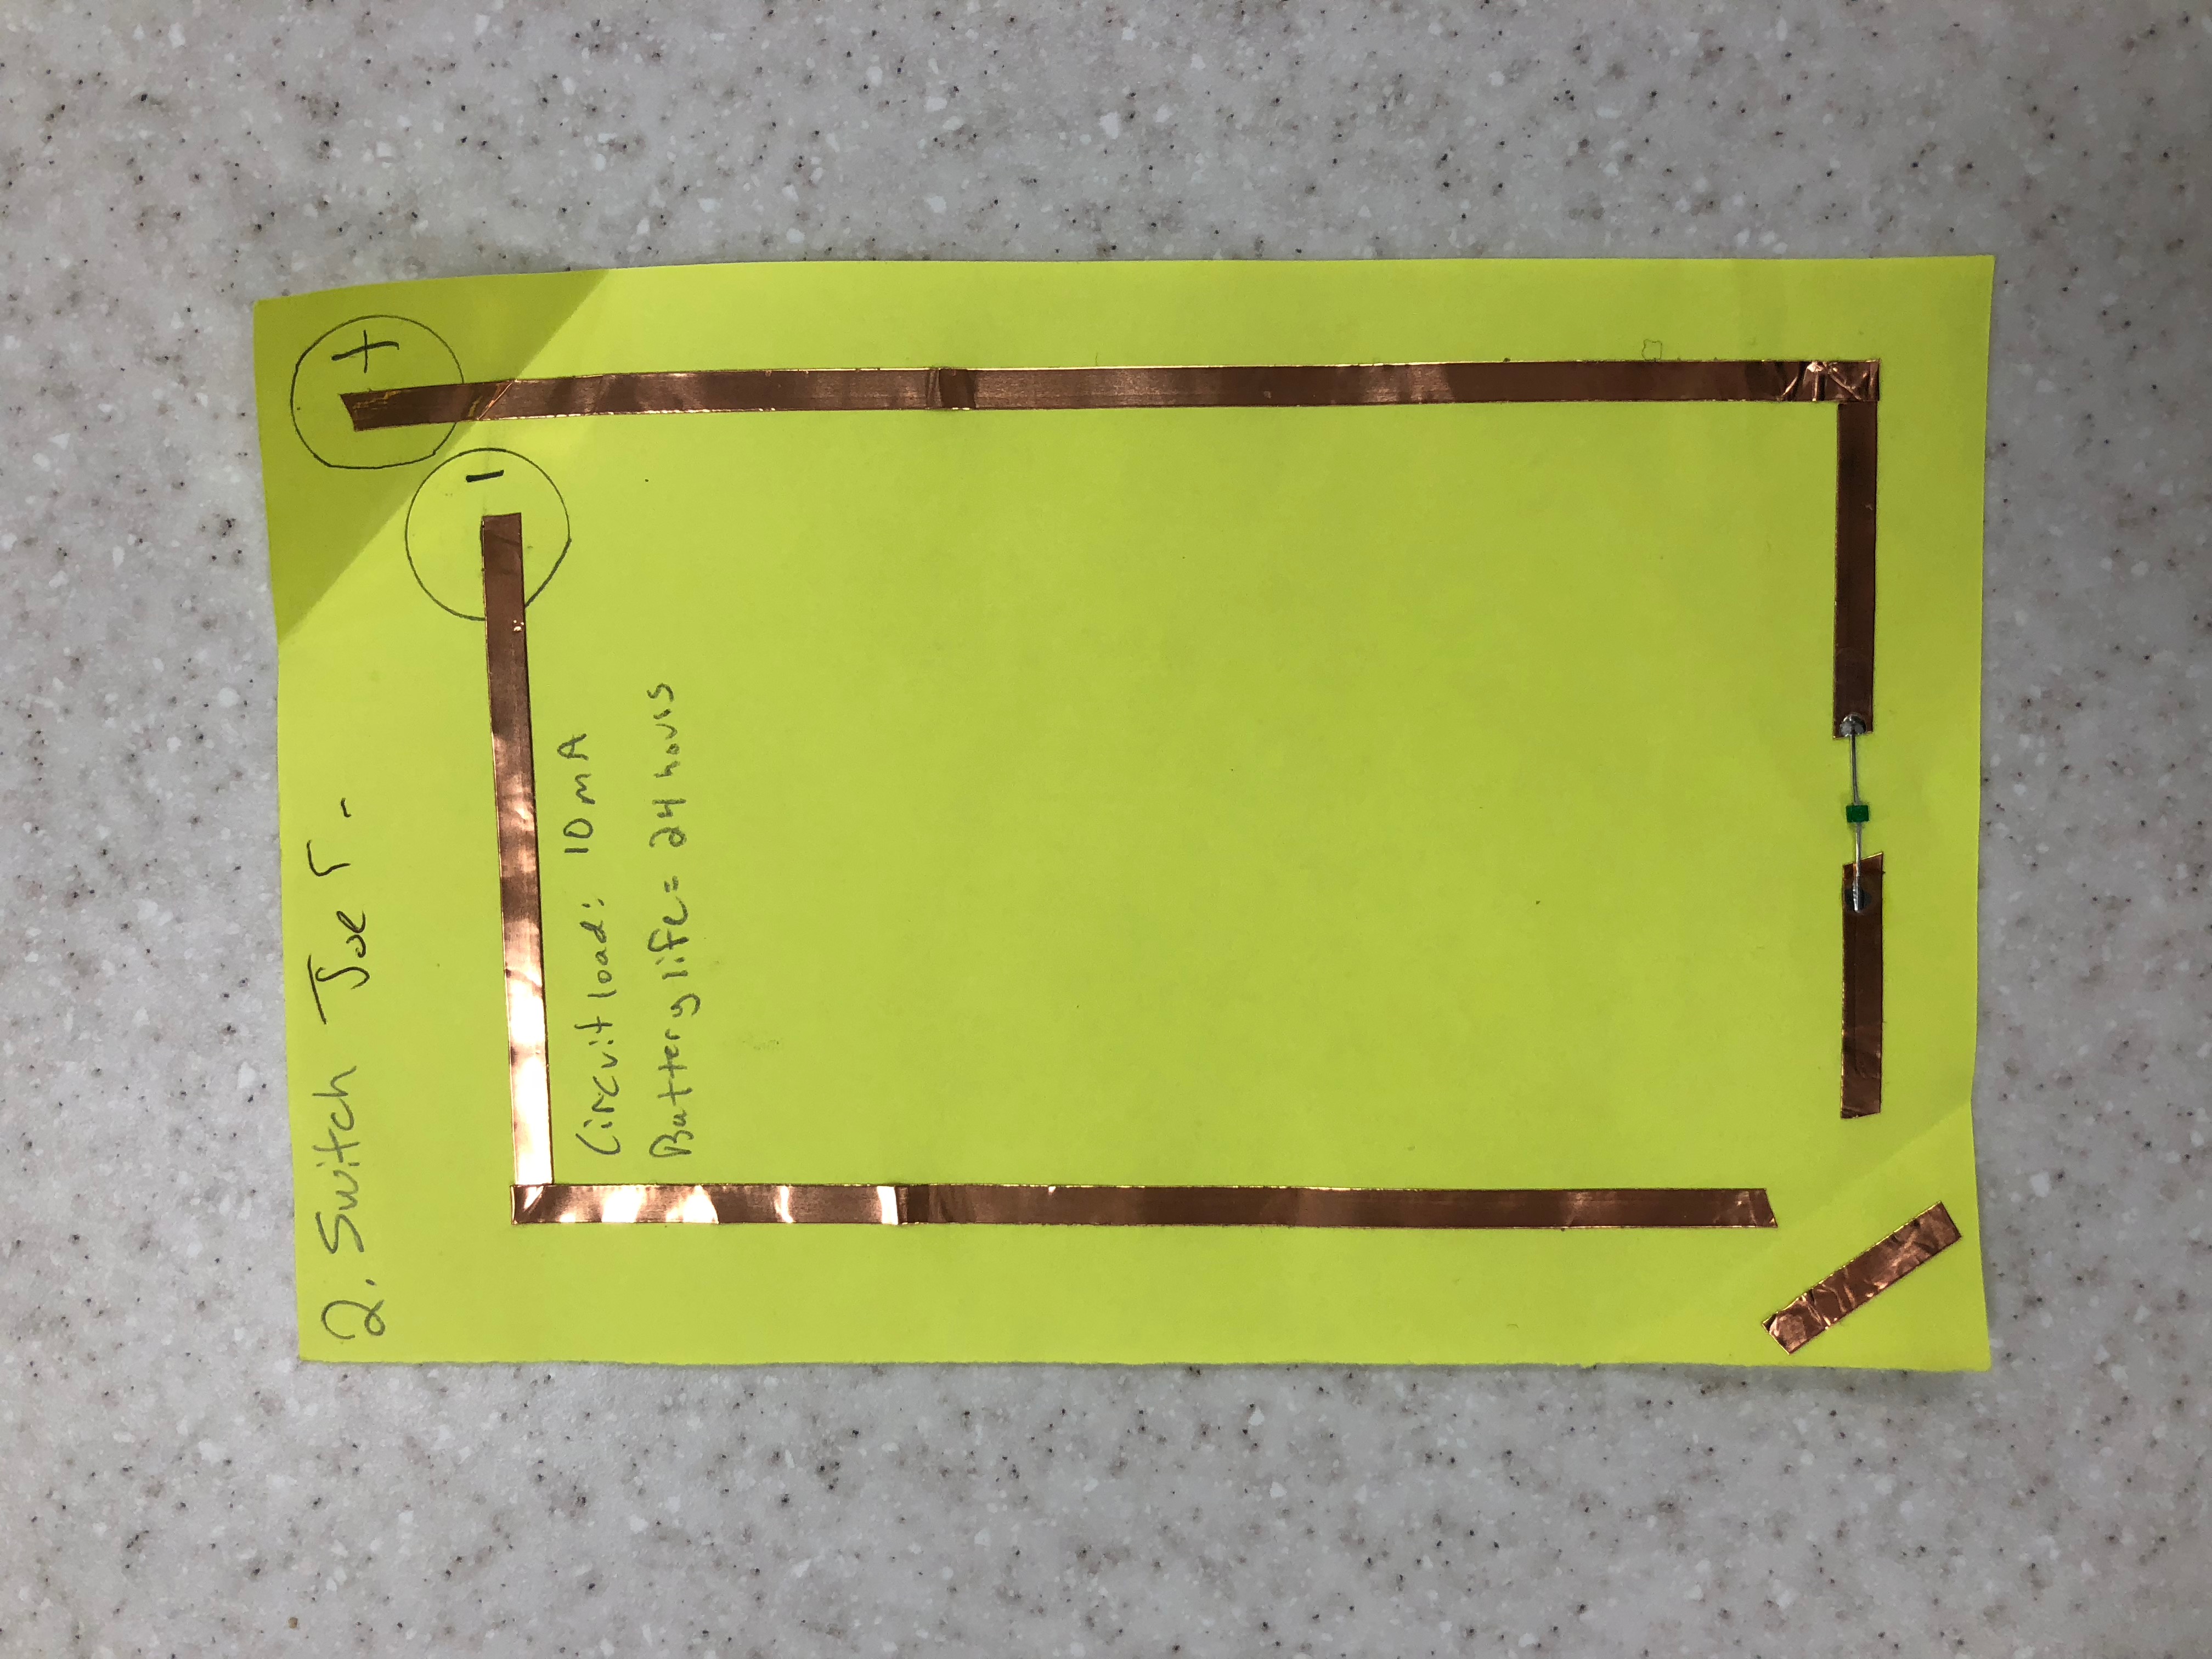 2. Switch Joe T.
+
-
Circuit load: 10 mA
Battery life = 24 hours